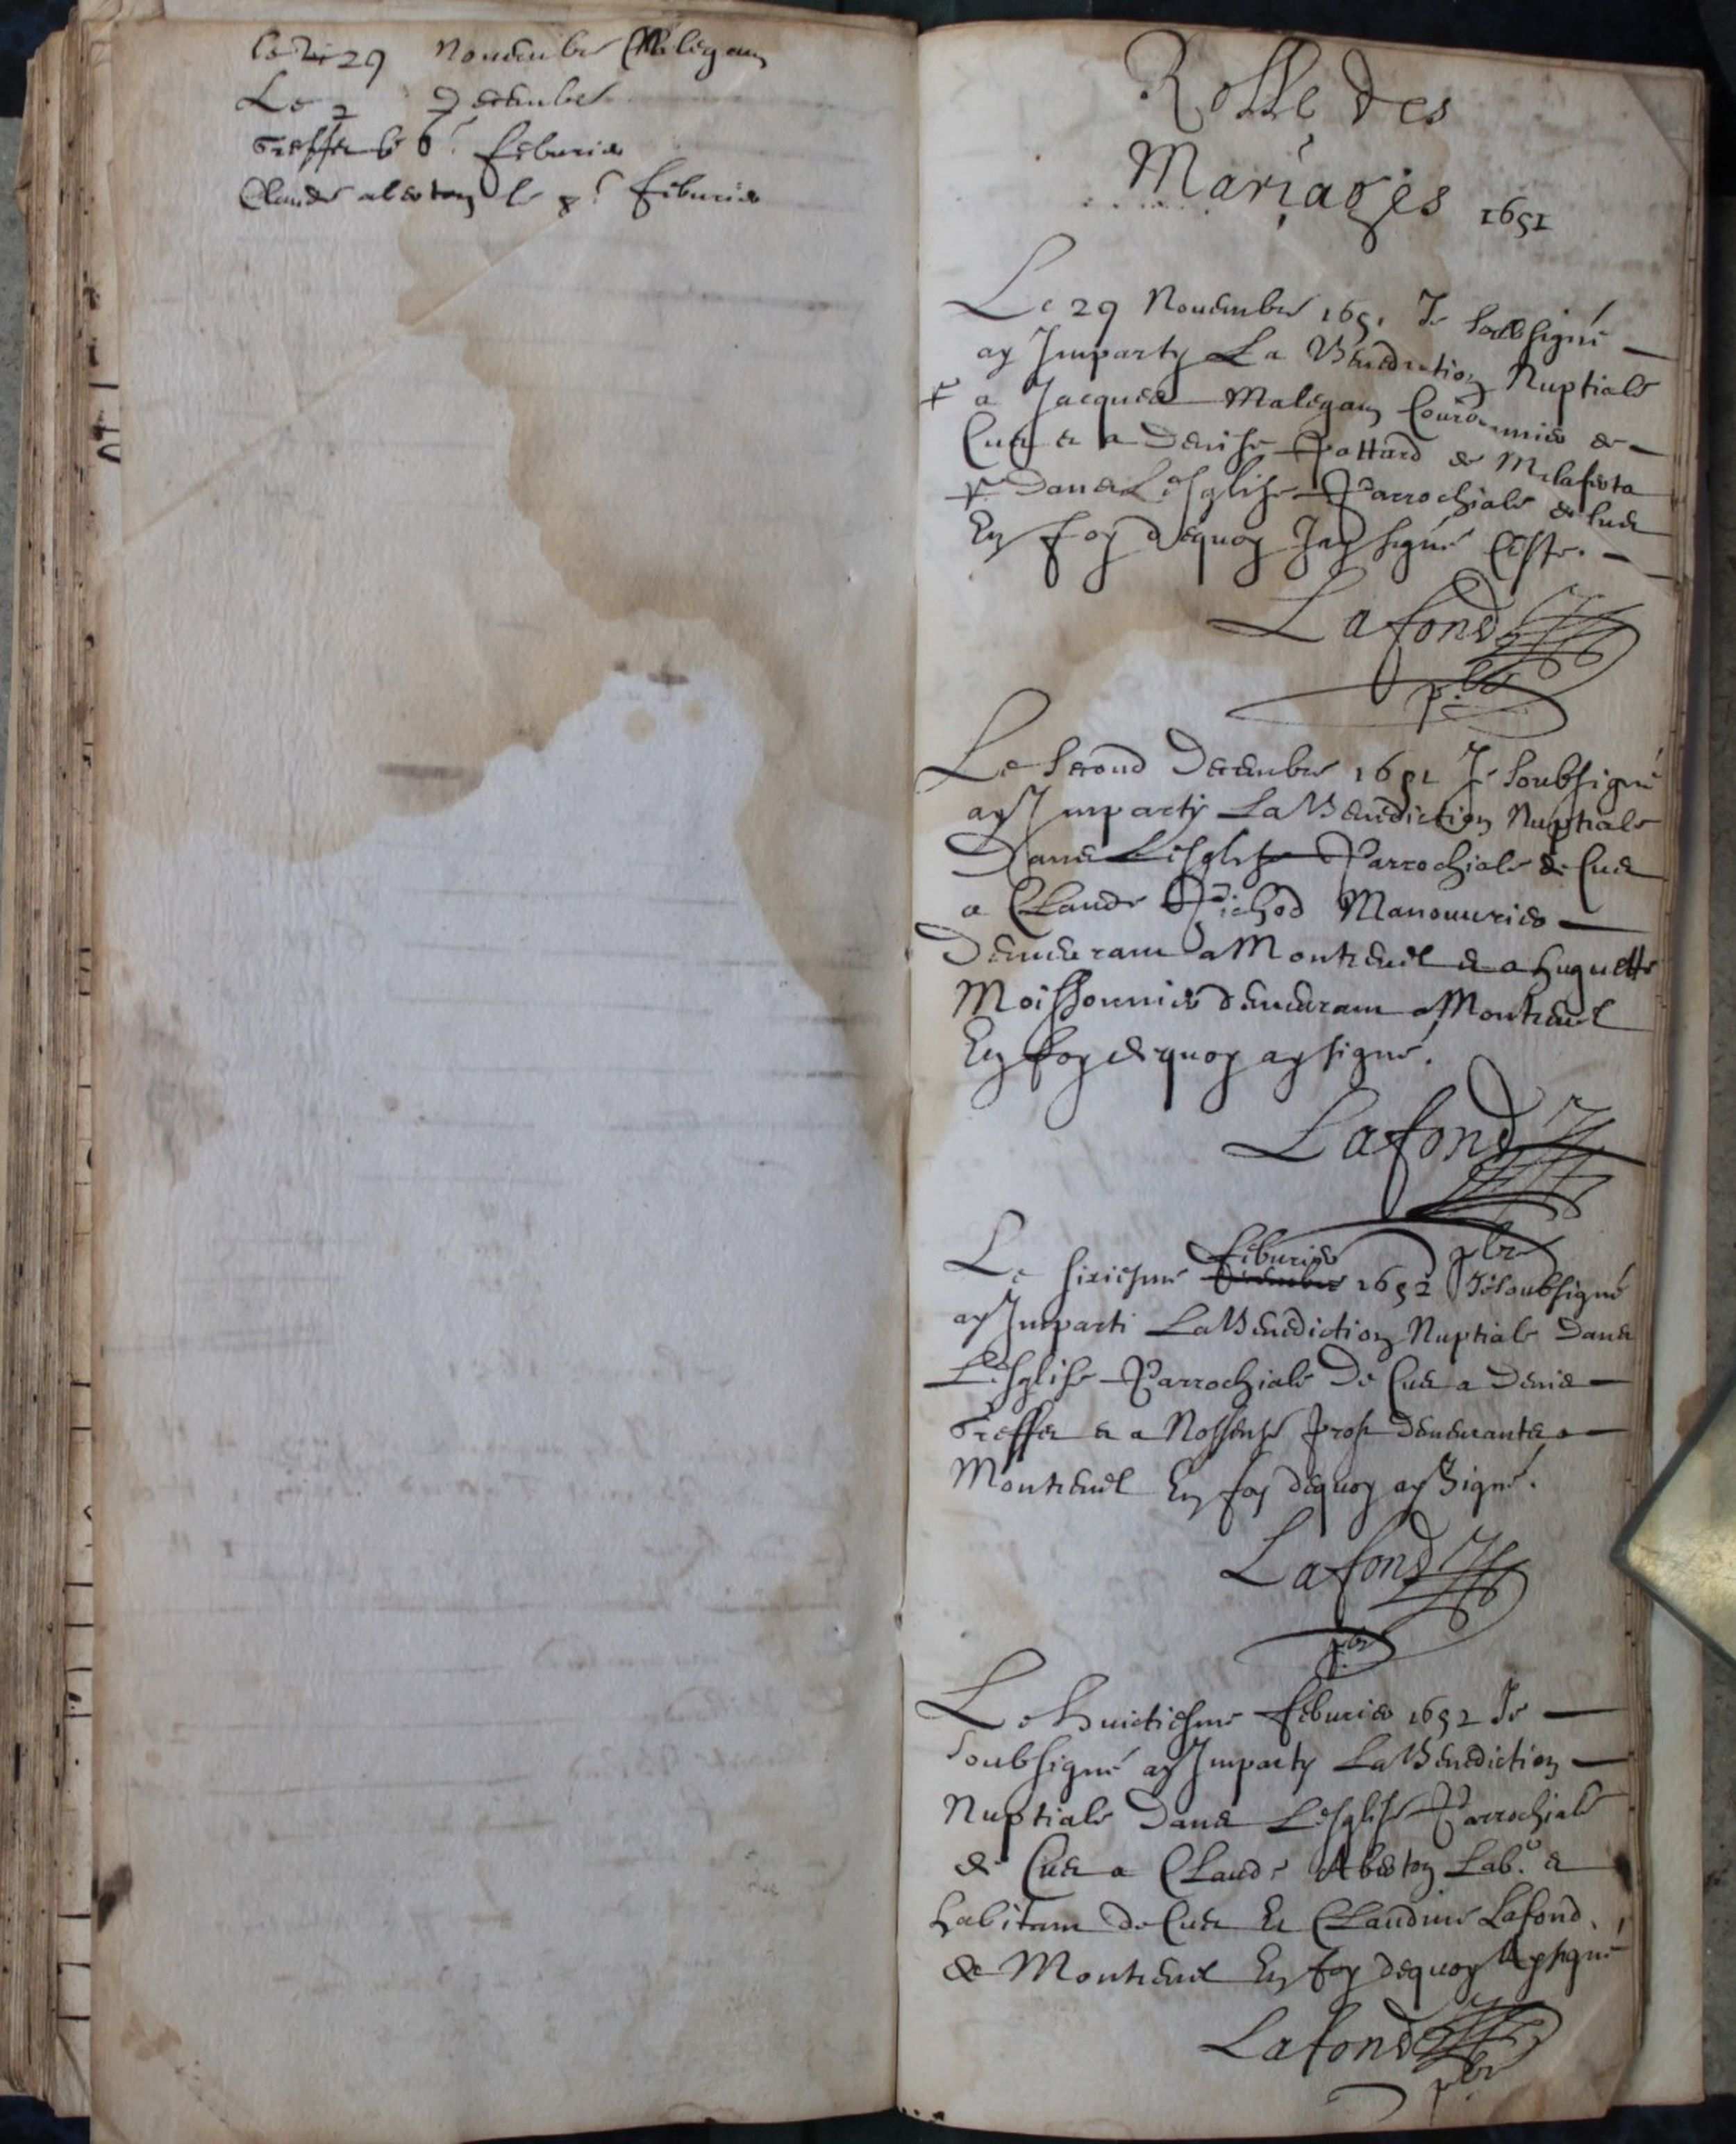 29 Nouembre Malegam
Le 2 Decembre
Treffet le 6e feburier
Claude aberton le 8e feburier
Rolle des
Mariages 1651
Le 29 Nouembre 1651 Je soubsigné
ay Imparty La Benediction Nuptiale
a Jacques Malegam de
Cues et a Denise Pottard de
Dans Lesglise Parrochiale de Cues
En foy dequoy Jay signé
Lafond
pbr
Le second Decembre 1651 Je soubsigné
ay Imparty La Benediction Nuptiale
Dans Lesglise Parrochiale de Cues
a Claude Pichod Manouurier
Demeurant a Montreuil et a huguette
Moissonnier demeurant a Montreuil
En foy dequoy ay signé.
Lafond
pbr
Le sixiesme feburier 1652 Je soubsigné
ay Imparti La Benediction Nuptiale Dans
Lesglise Parrochiale De Cues a Denis
Treffet et a demeurantes a
Montreuil En foy dequoy ay Signé.
Lafond
pbr
Le huictiesme feburier 1652 Je
soubsigné ay Imparty La Benediction
Nuptiale Dans Lesglise Parrochiale
de Cues a Claude Aberton Lab.r et
habitant de Cues Et Claudine Lafond
de Montreuil En foy dequoy ay signé
Lafond
pbr